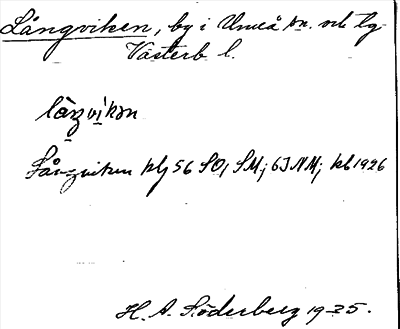 Långviken, by i Umeå sn. och tg.
Västerb. l.
Långviken klj 56 SO, SM; 63 NM; kb 1926
H. A. Söderberg 1925.